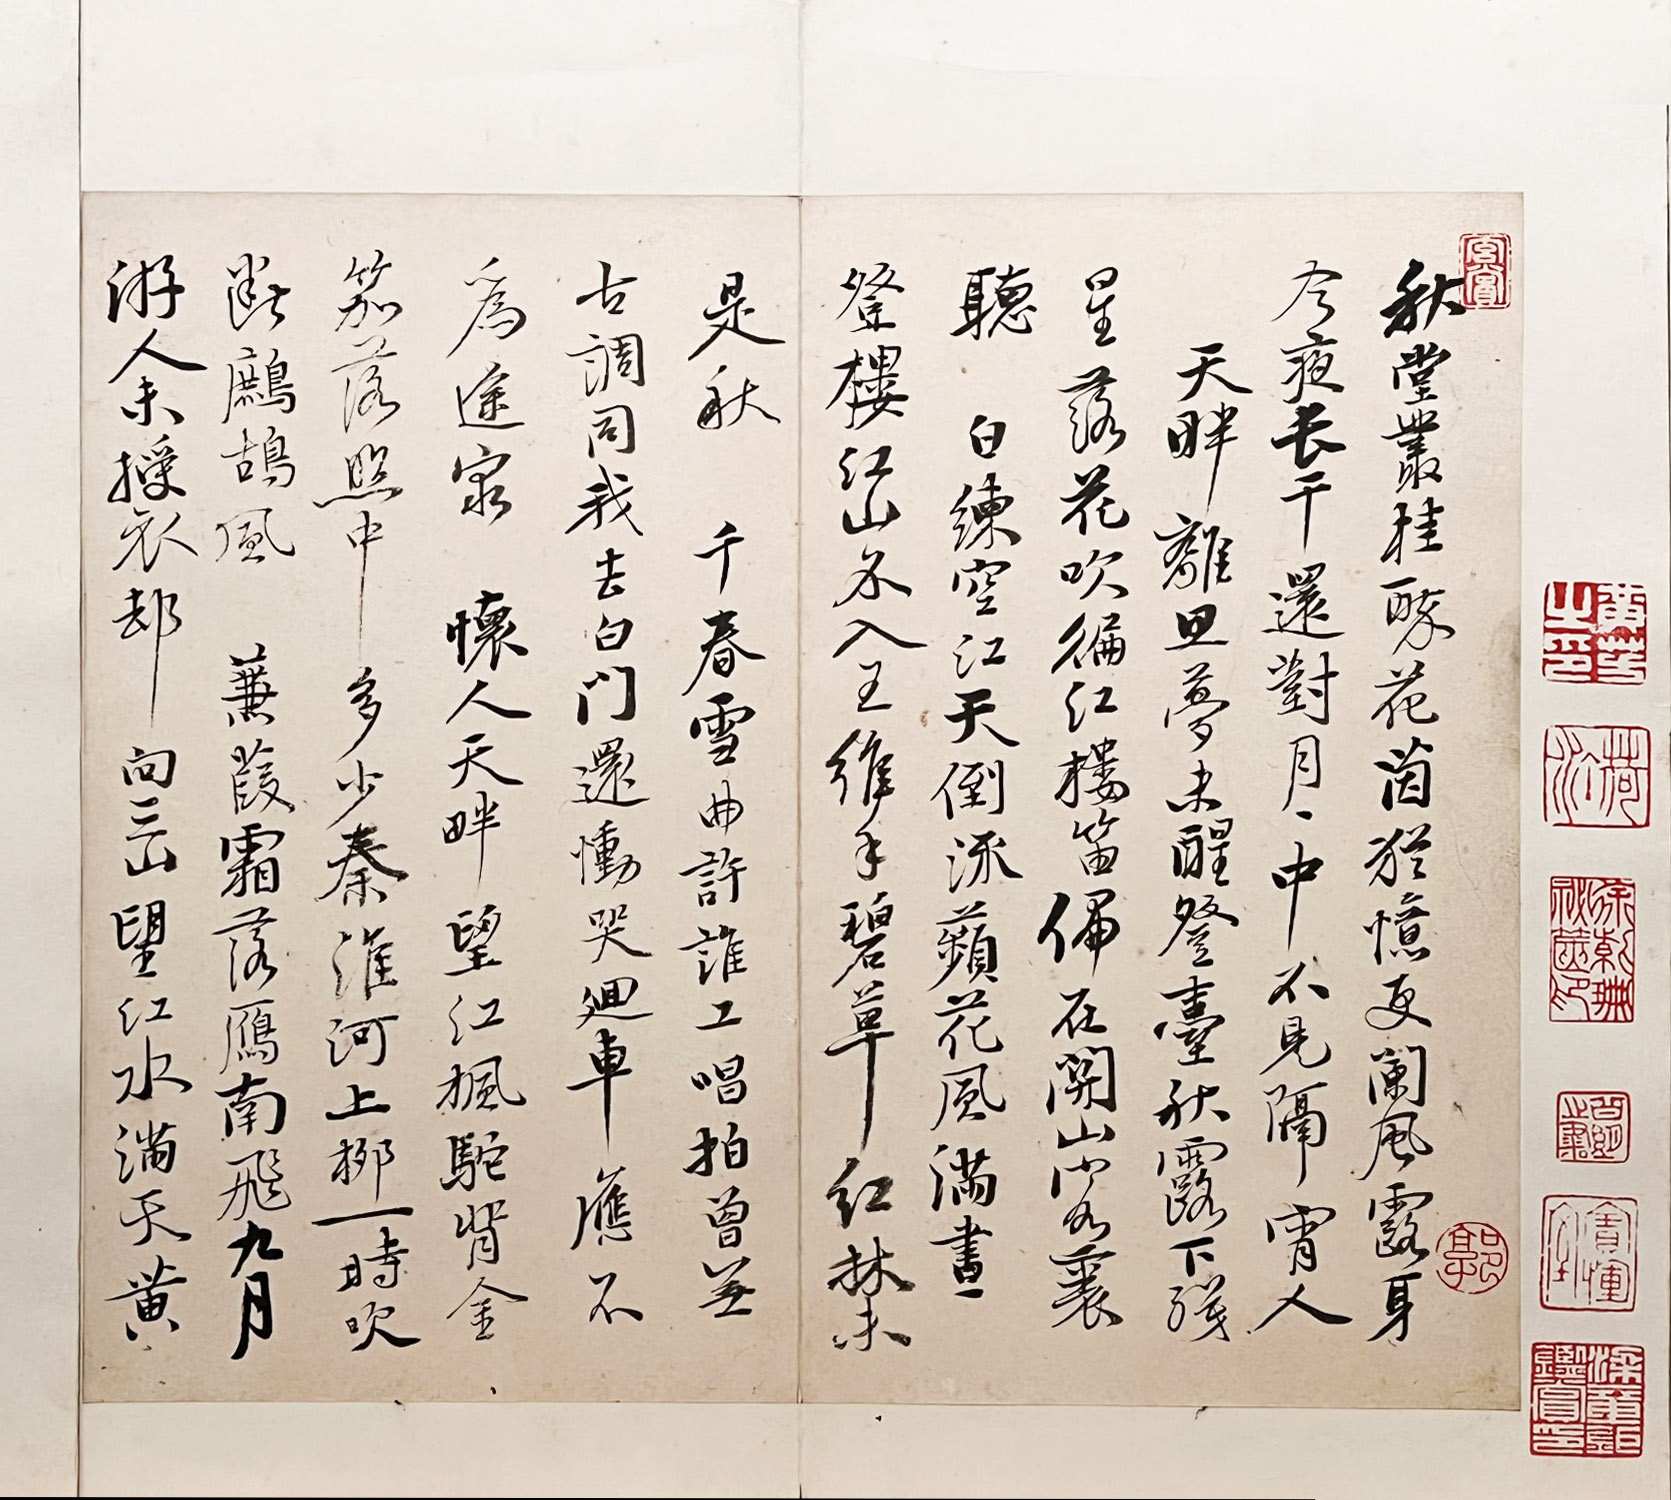 秋堂叢桂酴花茵猶憶更闌風露身
今夜長干還對月月中不見隔宵人
天畔離思夢未醒登臺秋露下殘
星落花吹徧江樓笛偏在關山客裏
聽 白練空江天倒流蘋花風滿畫
登樓江山不入王維手碧草紅林未
是秋 千春雪曲許誰工唱拍曾無
古調同我去白門還慟哭廻車應不
為途窮 懷人天畔望江楓駝背金
笳落照中多少秦淮河上柳一時吹
斷鷓鴣風 蒹葭霜落雁南飛九月
游人未授衣却向三山望江水滿天黃